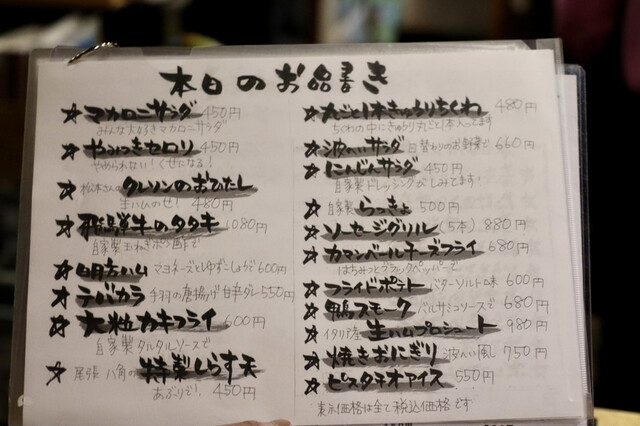 本日のお品書き
☆マカロニサラダ 450円
みんな大好きマカロニサラダ
☆やみつきセロリ 450円
やめられない!くせになる!
☆松本さんの クレソンのおひたし
生ハムのせ! 480円
☆飛騨牛のタタキ 1080円
自家製玉ねぎポン酢で
☆明方ハム マヨネーズとゆずこしょうで 600円
☆テバカラ 手羽の唐揚げ甘辛ダレ 550円
☆大粒カキフライ 600円
自家製タルタルソースで
☆尾張 八角の特製しらす天
あぶりで! 450円
☆丸ごと1本きゅうりちくわ 480円
ちくわの中にきゅうり丸ごと1本入ってます
☆波へいサラダ 日替わりのお刺身で 660円
☆にんじんサラダ 450円
自家製ドレッシングがしみてます!
☆自家製 らっきょ 500円
☆ソーセージグリル(5本) 880円
☆カマンベールチーズフライ 680円
はちみつとブラックペッパーで
☆フライドポテト バターソルト味 600円
☆鴨スモーク バルサミコソースで 680円
☆イタリア産 生ハムプロシュート 980円
☆焼きおにぎり 波へい風 750円
☆ピスタチオアイス 550円
表示価格は全て税込価格です